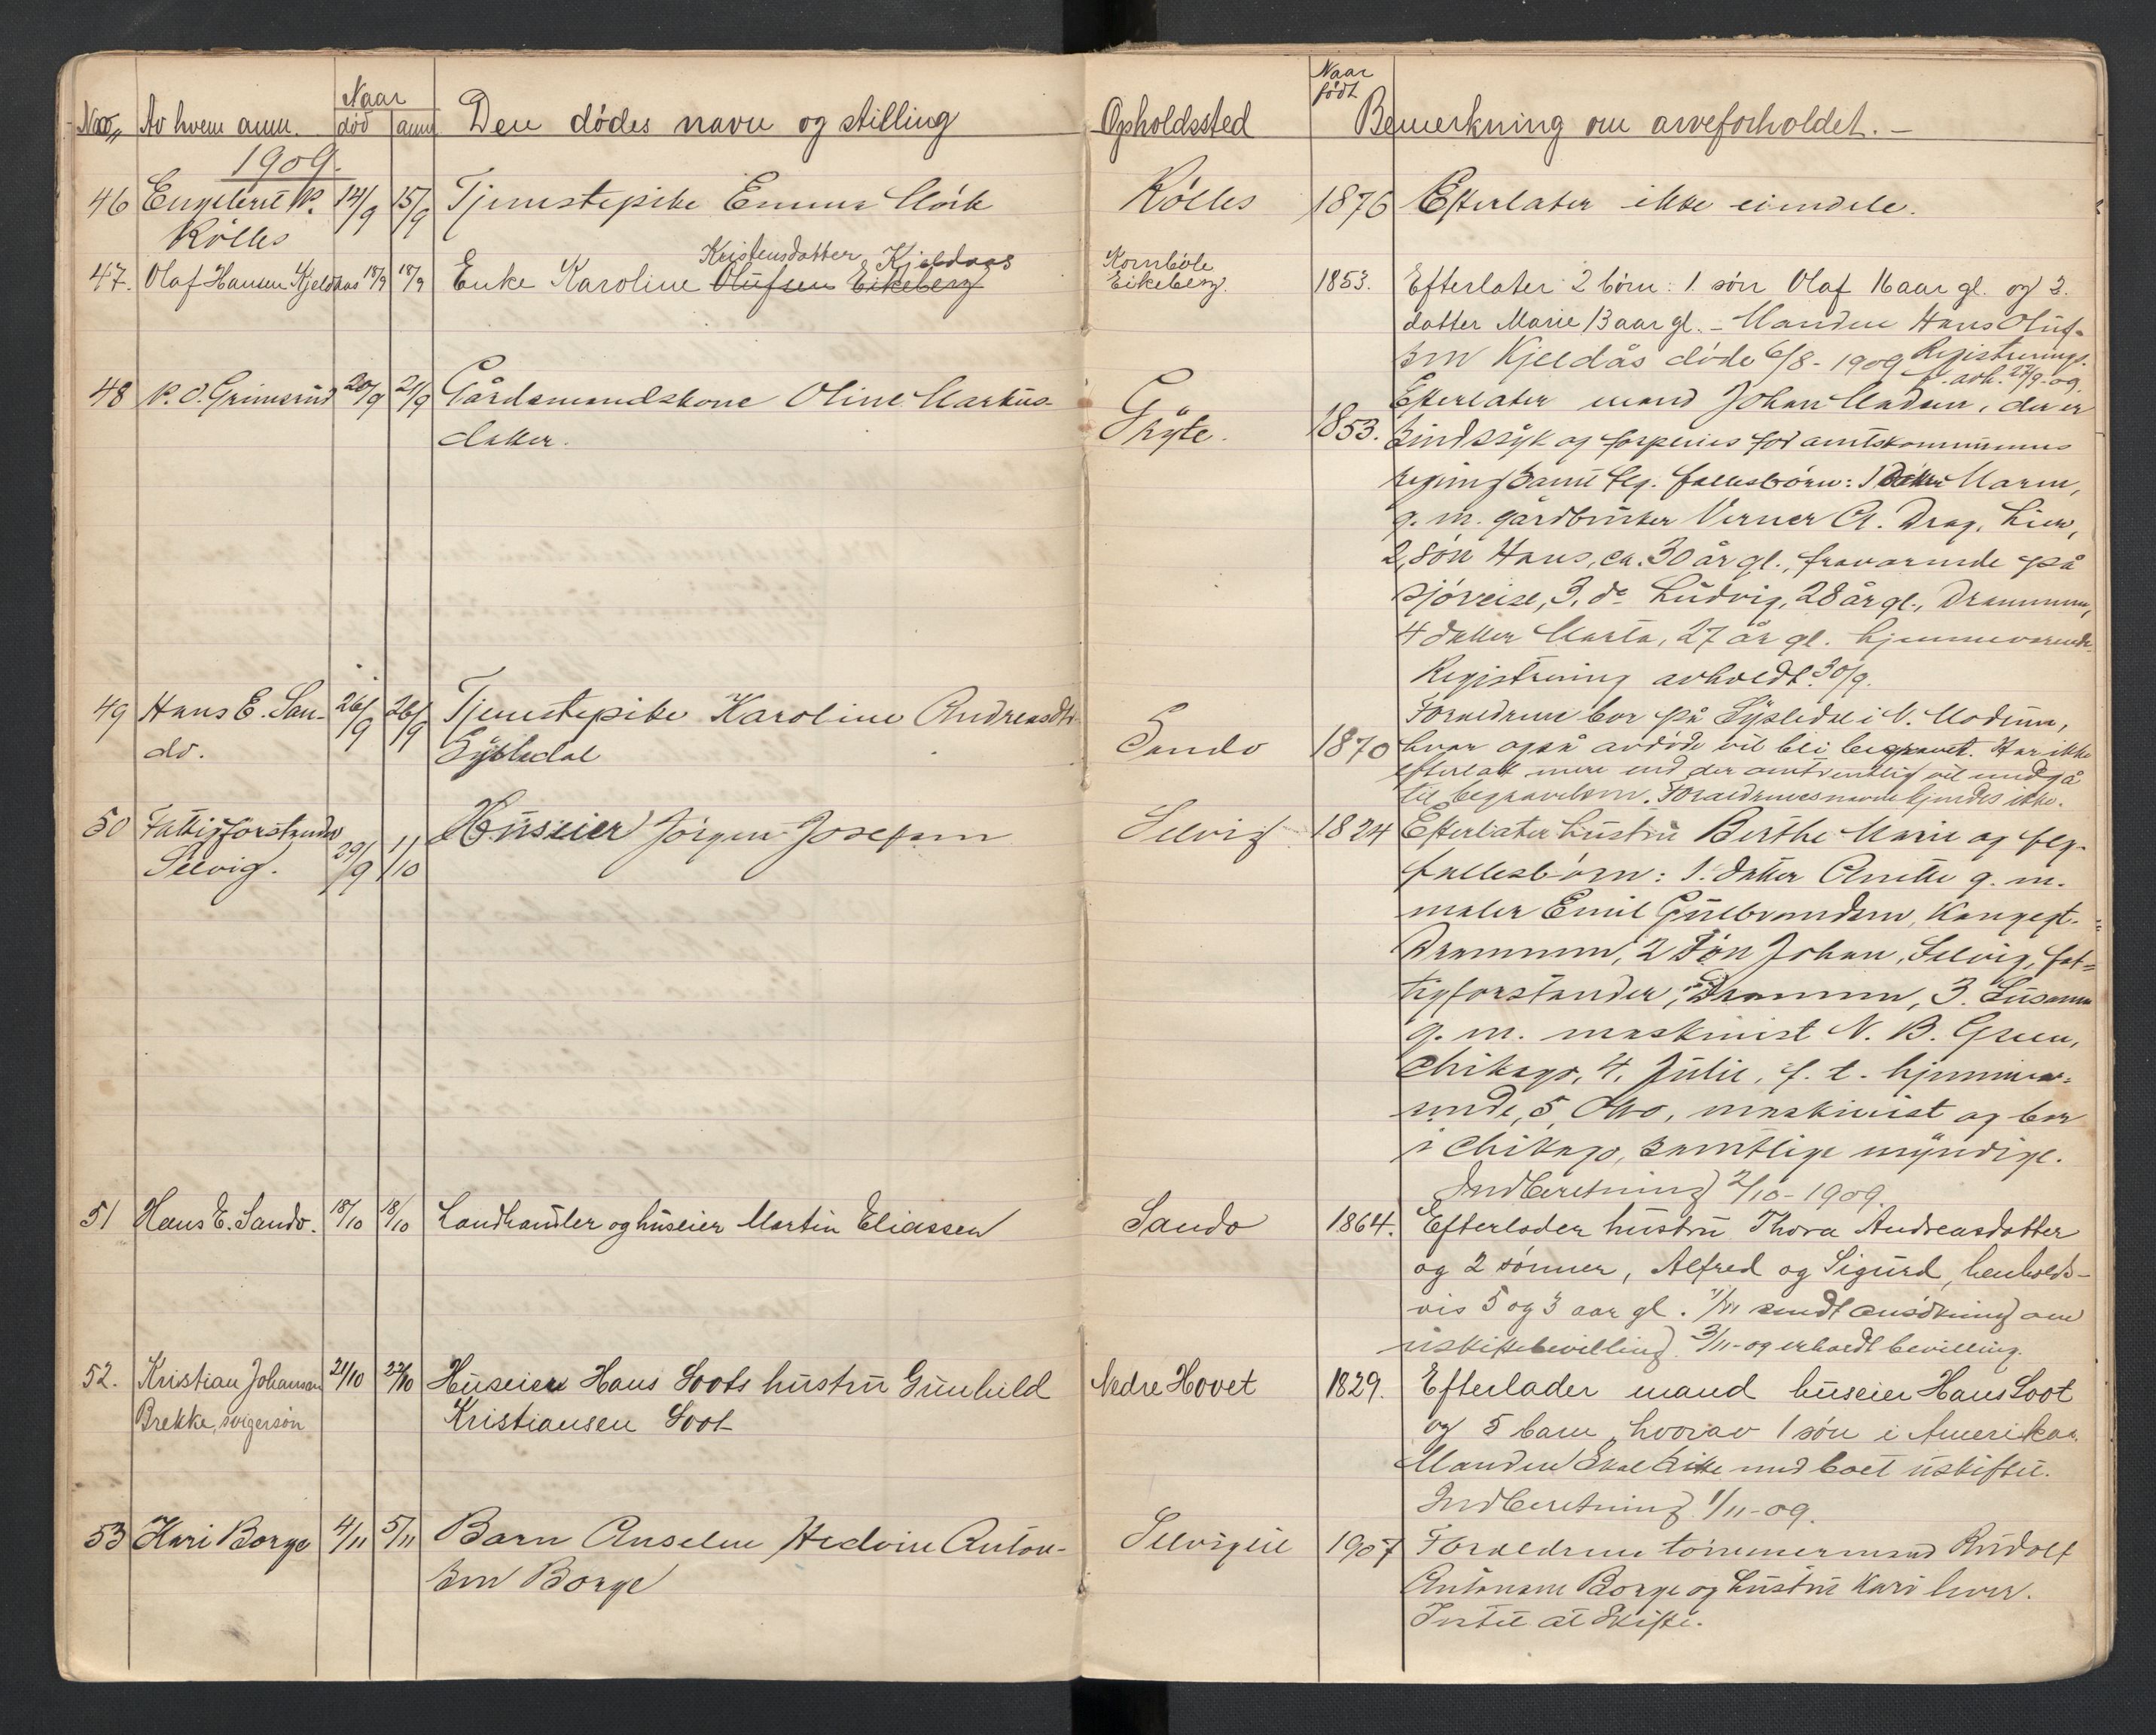 Naar
No. Av hvem anm. død anm. Den dødes navn og stilling
Opholdssted Naar født Bemerkning om arveforholdet. —
1909.
46 Engebret K. 14/9 15/9 Tjenestepike Emma Hörk Kölles 1876 Efterlater ikke eiendele.
Kölles
Kristensdatter Kjeldaas
47. Olaf Hansen Kjeldaas 18/9 18/9 Enke Karoline Olufsen Eikeberg
Kornböle
Eikeberg. 1853. Efterlater 2 börn: 1. sön Olaf 16 aar gl. og 2.
datter Marie 13 aar gl. – Manden Hans Oluf-
sen Kjeldås döde 6/8 - 1909 Registrerings-
f. avh. 27/9-09.
48 K. O. Grimsrud 20/9 21/9 Gårdsmandskone Oline Markus-
datter.
Gryte. 1853. Efterlater mand Johan Madsen, der er
sindssyk og forpleies for amtskommunens
regning samt flg. fællesbörn: 1 datter Maren,
g. m. gårdbruker Verner A. Drag, Lier,
2, sön Hans, ca. 30 år gl., fraværende på
sjöreise, 3. do Ludvig, 28 år gl., Drammen,
4 datter Marta, 27 år gl. hjemmeværende.
Registrering avholdt 30/9.
49 Hans E. San- 26/9 26/9 Tjenestepike Karoline Andreasdtr.
do. Sysledal
Sando 1870 Forældrene bor på Sysledal i N. Modum,
hvor også avdöde vil bli begravet. Har ikke
efterlatt mere end der omtrentlig vil medgå
til begravelsen. Forældrenes navne kjendes ikke.
50 Fattigforstander 29/9 1/10 Huseier Jörgen Josefsen
Selvig.
Selvig 1824 Efterlater hustru Berthe Marie og flg.
fællesbörn: 1. datter Anette g. m.
maler Emil Gulbrandsen, Kongegt.
Drammen, 2 Sön Johan, Selvig, fat-
tigforstander, Drammen, 3. Susanna
g. m. maskinist N. B. Green,
Chikago, 4. Julie, f. t. hjemmevæ-
rende, 5, Otto, maskinist og bor
i Chikago, samtlige myndige.
Indberetning 2/10 - 1909.
51 Hans E. Sando. 18/10 18/10 Landhandler og huseier Martin Eliassen Sando 1864. Efterlader hustru Thora Andreasdatter
og 2 sönner, Alfred og Sigurd, henholds-
vis 5 og 3 aar gl. 1/11 sendt ansökning om
uskiftebevilling 3/11 - og erholdt bevilling.
52. Kristian Johansen 21/10 22/10 Huseier Hans Soots hustru Gunhild Nedre Hovet 1829. Efterlader mand huseier Hans Soot
Brekke, svigersön Kristiansen Soot
og 5 barn, hvorav 1 sön i Amerika.
Manden skal sitte med boet uskiftet.
Indberetning 1/11 - 09.
53 Kari Borge 4/11 5/11 Barn Anselm Hedvin Anton- Selvigeie 1907 Forældrene tömmermand Rudolf
sen Borge Antonsen Borge og hustru Kari lever.
Intet at skifte.